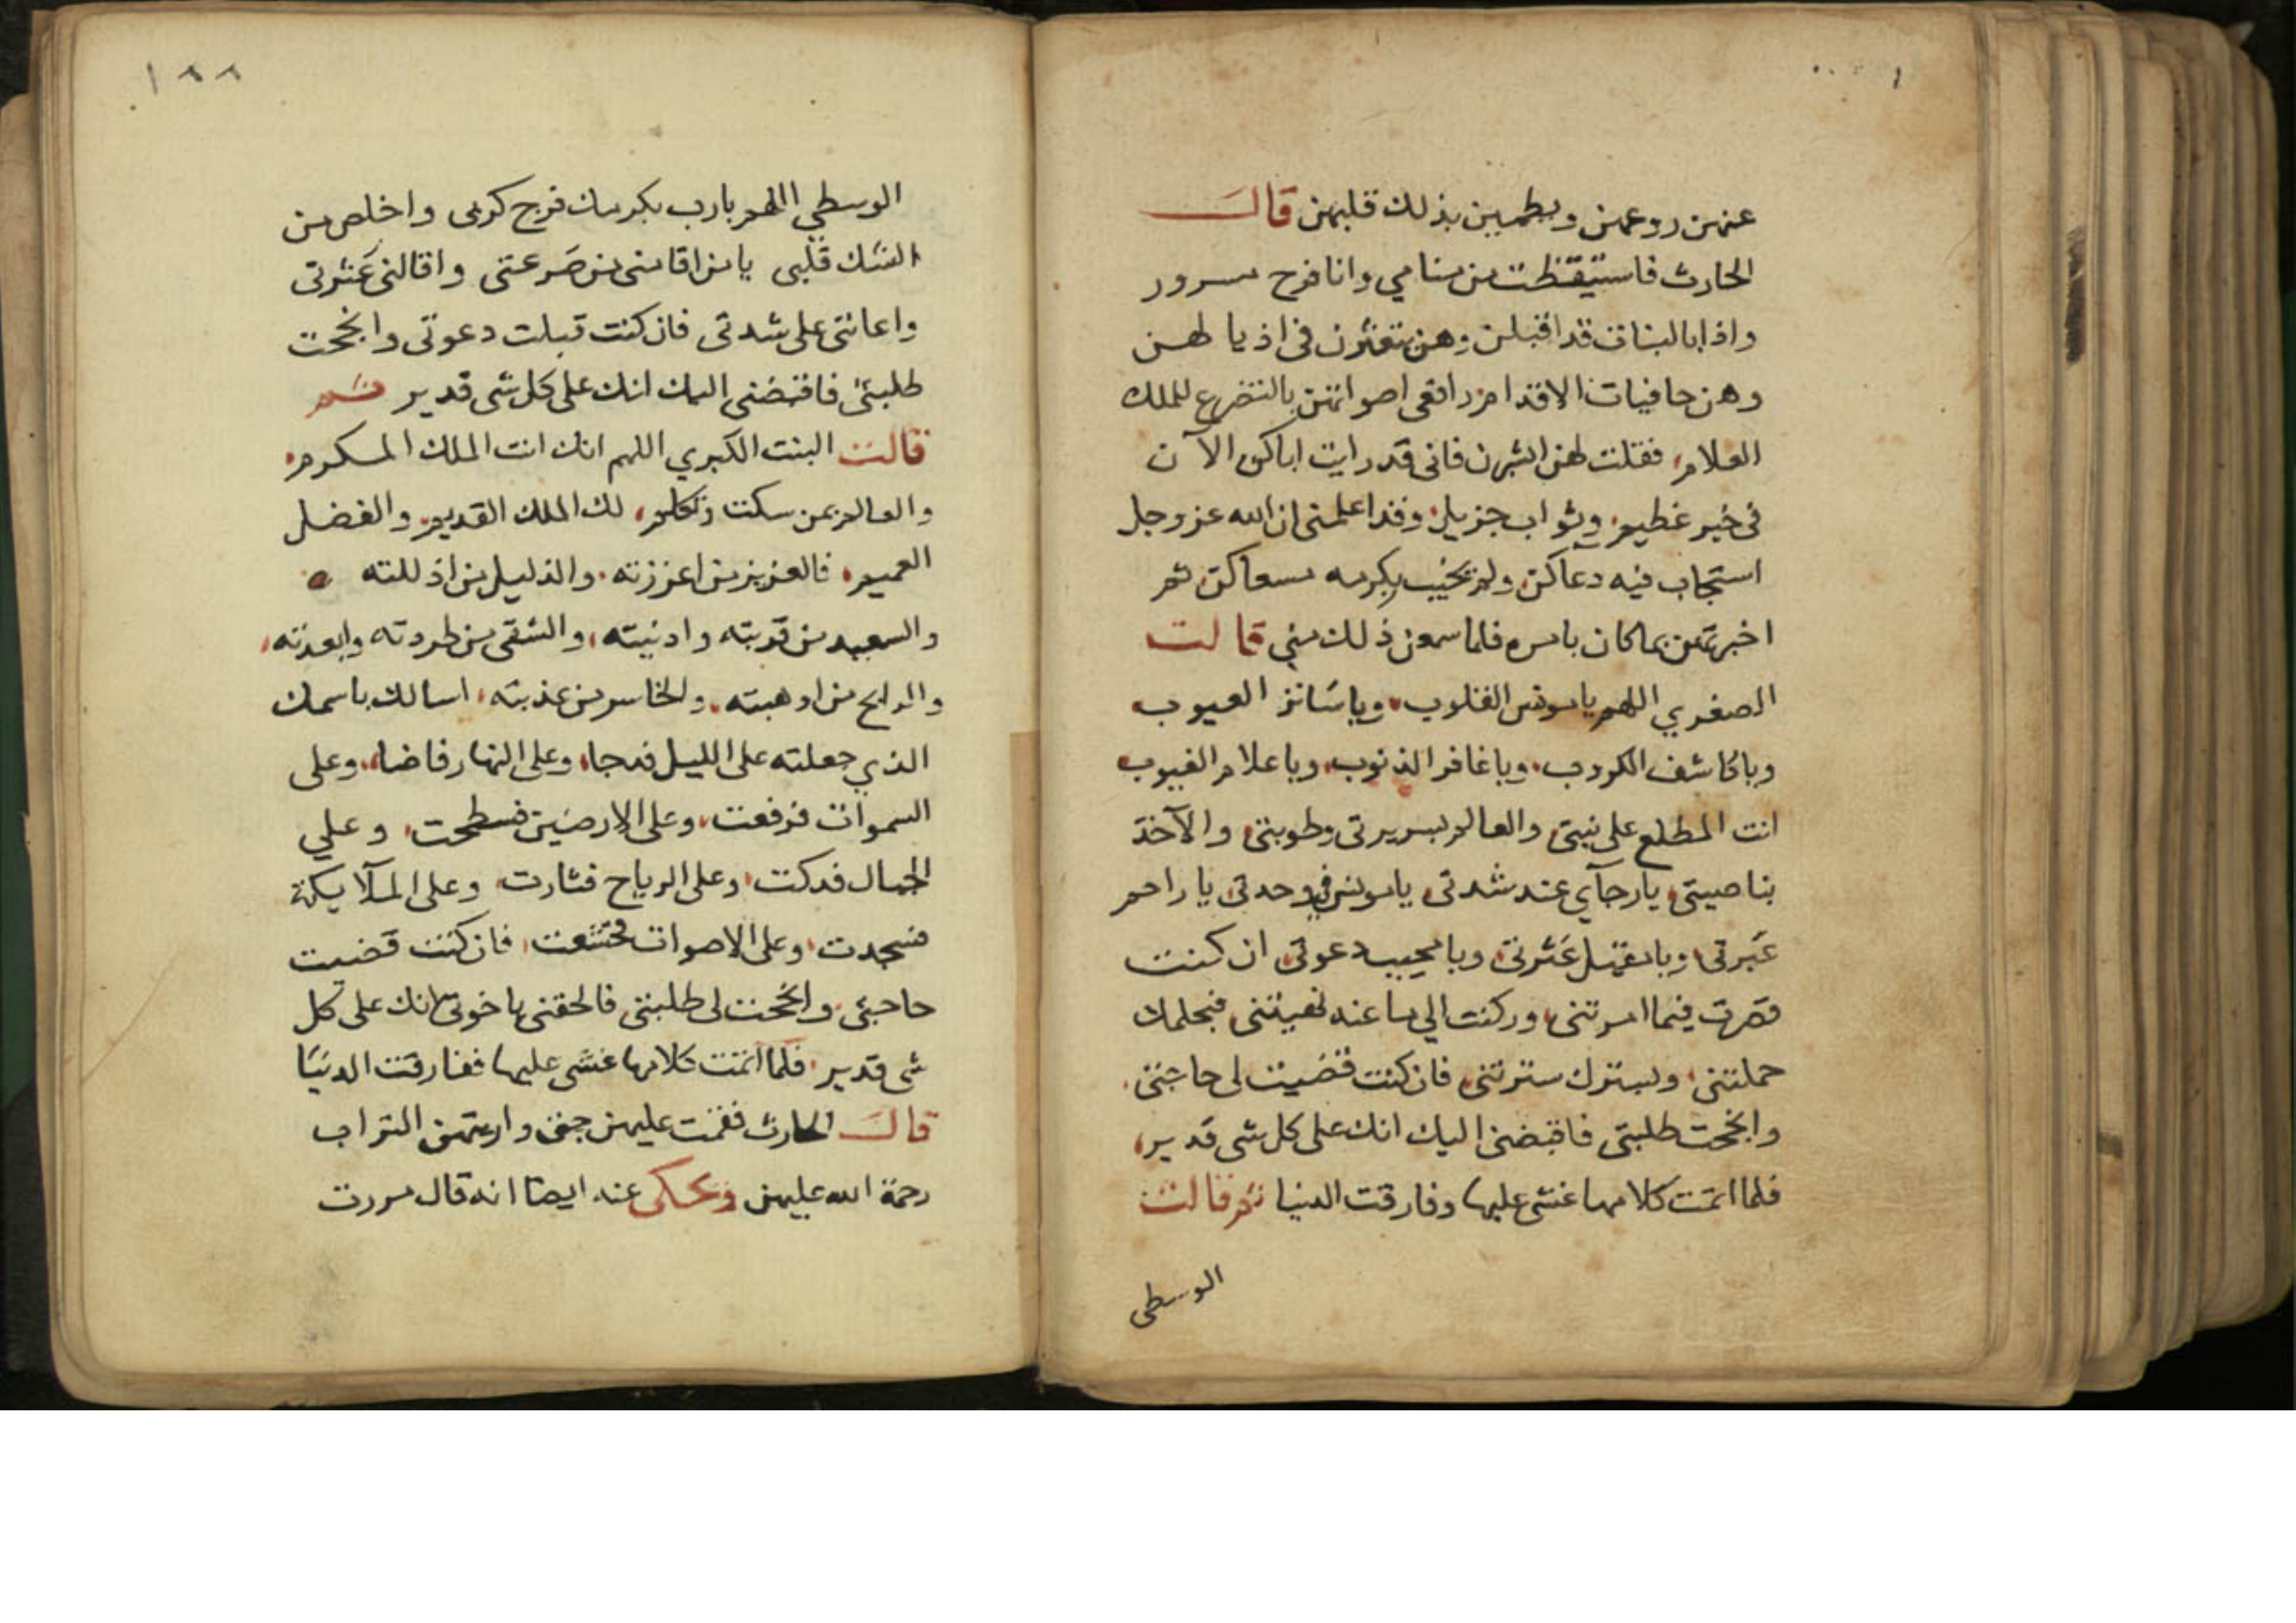 عنهن روعهن ويطمين بذلك قلبهن قال
الحارث فاستيقظت من منامي وانا فرح مسرور
واذا بالبنات قد اقبلن وهن يتعثرن في اذيالهن
وهن حافيات الاقدام رافعي اصواتهن بالتضرع للملك
العلام فقلت لهن ابشرن فاني قد رايت اباكن الآن
في خير عظيم وثواب جزيل وقد اعلمني ان الله عز وجل
استجاب فيه دعاكن ولم يخيب بكرمه مسعاكن ثم
اخبرتهن بما كان بامره فلما سمعن ذلك مني قالت
الصغري اللهم يا مونس القلوب ويا ساتر العيوب
ويا كاشف الكروب ويا غافر الذنوب ويا علام الغيوب
انت المطلع على نيتي والعالم بسريرتي وطويتي والآخذ
بناصيتي يا رجآي عند شدتي يا مونس في وحدتي يا راحم
عَبرتي ويا مقيل عَثرتي ويا مجيب دعوتي ان كنت
قصرت فيما امرتني وركنت الي ما عنه نهيتني فبحلمك
حملتني وبسترك سترتني فان كنت قضيت لي حاجتي
وانجحت طلبتي فاقبضني اليك انك على كل شى قدير
فلما اتمت كلامها غشى عليها وفارقت الدنيا ثم قالت
الوسطى
١٨٨
الوسطي اللهم يا رب بكرمك فرج كربى واخلص من
الشك قلبى يا من اقامنى من صَرعتى واقالني عَثرتى
واعانتى على شدتى فان كنت قبلت دعوتى وانجحت
طلبتي فاقبضنى اليك انك على كل شى قدير ثم
قالت البنت الكبري اللهم انك انت الملك المكرم
والعالم بمن سكت وتكلم لك الملك القديم والفضل
العميم فالعزيز من اعززته والذليل من اذللته
والسعيد من قربته وادنيته والشقى من طردته وابعدته
والرابح من اوهبته والخاسر من عذبته اسالك باسمك
الذي جعلته على الليل فدجا وعلى النهار فاضا وعلى
السموات فرفعت وعلى الارضين فسطحت وعلي
الجبال فدكت وعلى الرياح فثارت وعلى الملآيكة
فسجدت وعلى الاصوات فخشعت فان كنت قضيت
حاجتي وانجحت لى طلبتي فالحقني باخوتي انك على كل
شى قدير فلما اتمت كلامها غشى عليها ففارقت الدنيا
قال الحارث فقمت عليهن وارعتهن التراب
رحمة الله عليهن وحكى عنه ايضا انه قال مررت